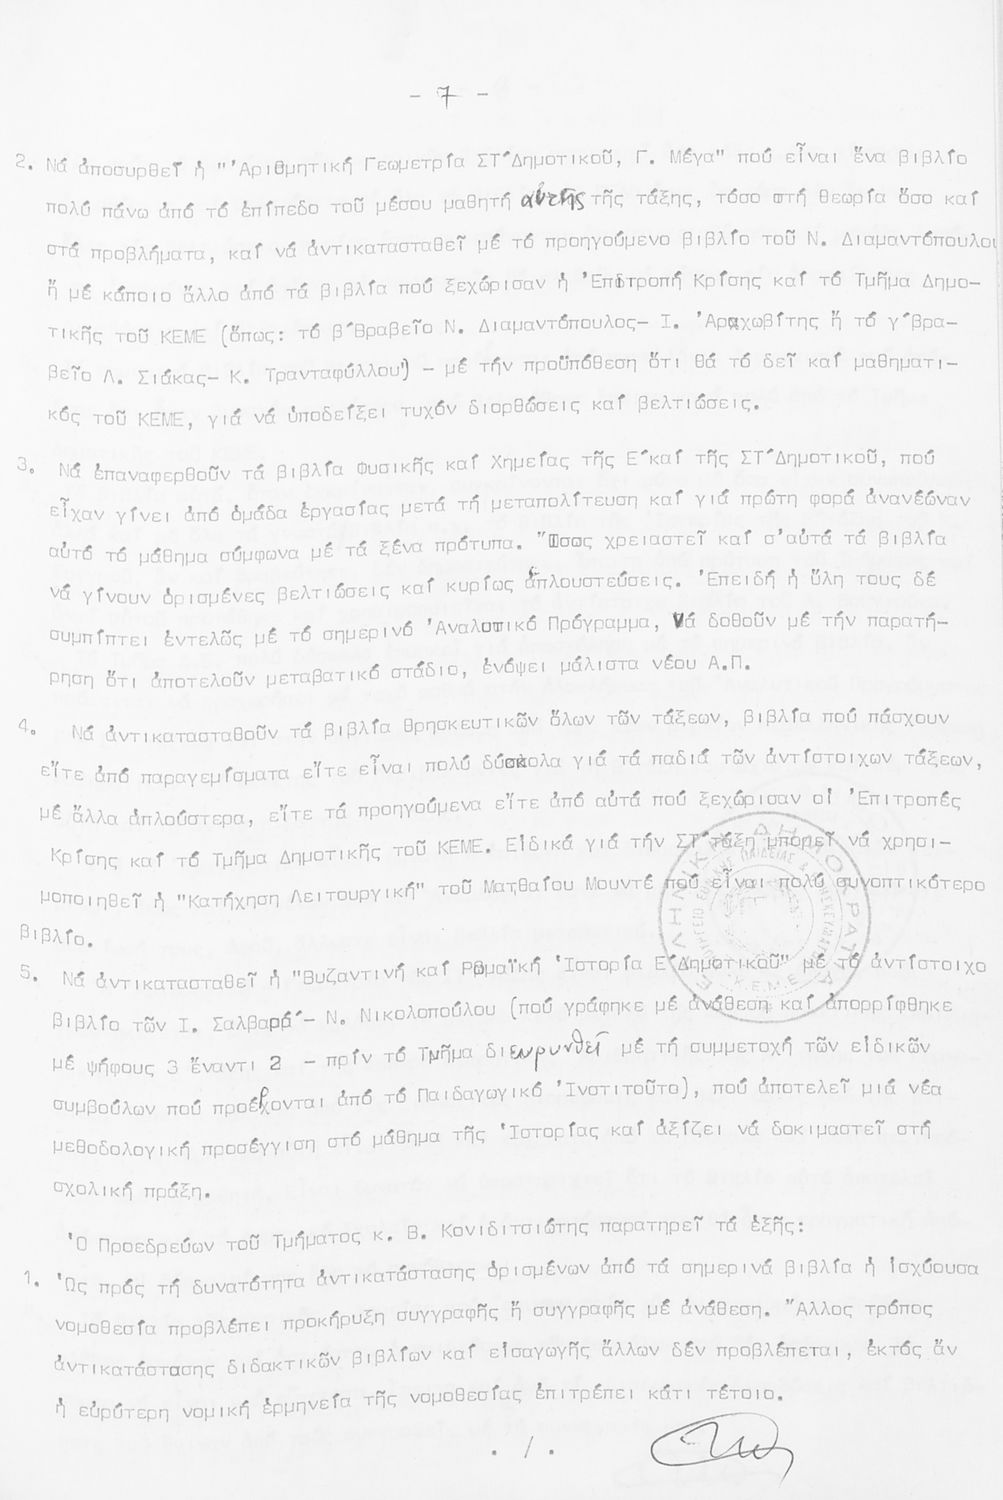 - 7 -
2. Νά ἀποσυρθεῖ ἡ "Ἀριθμητική Γεωμετρία ΣΤ´Δημοτικοῦ, Γ. Μέγα" πού εἶναι ἕνα βιβλίο
πολύ πάνω ἀπό τό ἐπίπεδο τοῦ μέσου μαθητῆ αὐτῆς τῆς τάξης, τόσο στή θεωρία ὅσο καί
στά προβλήματα, καί νά ἀντικατασταθεῖ μέ τό προηγούμενο βιβλίο τοῦ Ν. Διαμαντόπουλου
ἤ μέ κάποιο ἄλλο ἀπό τά βιβλία πού ξεχώρισαν ἡ Ἐπιτροπή Κρίσης καί τό Τμῆμα Δημο-
τικῆς τοῦ ΚΕΜΕ (ὅπως: τό β´Βραβεῖο Ν. Διαμαντόπουλος- Ι. Ἀραχωβίτης ἤ τό γ´βρα-
βεῖο Λ. Σιάκας- Κ. Τρανταφύλλου) - μέ τήν προϋπόθεση ὅτι θά τό δεῖ καί μαθηματι-
κός τοῦ ΚΕΜΕ, γιά νά ὑποδείξει τυχόν διορθώσεις καί βελτιώσεις.
3. Νά ἐπαναφερθοῦν τά βιβλία Φυσικῆς καί Χημείας τῆς Ε´καί τῆς ΣΤ´Δημοτικοῦ, πού
εἶχαν γίνει ἀπό ὁμάδα ἐργασίας μετά τή μεταπολίτευση καί γιά πρώτη φορά ἀνανέωναν
αὐτό τό μάθημα σύμφωνα μέ τά ξένα πρότυπα. Ἴσως χρειαστεῖ καί σ'αὐτά τά βιβλία
νά γίνουν ὁρισμένες βελτιώσεις καί κυρίως ἁπλουστεύσεις. Ἐπειδή ἡ ὕλη τους δέ
συμπίπτει ἐντελῶς μέ τό σημερινό Ἀναλυτικό Πρόγραμμα, Νά δοθοῦν μέ τήν παρατή-
ρηση ὅτι ἀποτελοῦν μεταβατικό στάδιο, ἐνόψει μάλιστα νέου Α.Π.
4. Νά ἀντικατασταθοῦν τά βιβλία θρησκευτικῶν ὅλων τῶν τάξεων, βιβλία πού πάσχουν
εἴτε ἀπό παραγεμίσματα εἴτε εἶναι πολύ δύσκολα γιά τά παδιά τῶν ἀντίστοιχων τάξεων,
μέ ἄλλα ἁπλούστερα, εἴτε τά προηγούμενα εἴτε ἀπό αὐτά πού ξεχώρισαν οἱ Ἐπιτροπές
Κρίσης καί τό Τμῆμα Δημοτικῆς τοῦ ΚΕΜΕ. Εἰδικά γιά τήν ΣΤ´τάξη μπορεῖ νά χρησι-
μοποιηθεῖ ἡ "Κατήχηση Λειτουργική" τοῦ Ματθαίου Μουντέ πού εἶναι πολύ συνοπτικότερο
βιβλίο.
5. Νά ἀντικατασταθεῖ ἡ "Βυζαντινή καί Ρωμαϊκή Ἱστορία Ε´Δημοτικοῦ" μέ τό ἀντίστοιχο
βιβλίο τῶν Ι. Σαλβαρά - Ν. Νικολοπούλου (πού γράφηκε μέ ἀνάθεση καί ἀπορρίφθηκε
μέ ψήφους 3 ἔναντι 2 - πρίν τό Τμῆμα διευρυνθεῖ μέ τή συμμετοχή τῶν εἰδικῶν
συμβούλων πού προέρχονται ἀπό τό Παιδαγωγικό Ἰνστιτοῦτο), πού ἀποτελεῖ μιά νέα
μεθοδολογική προσέγγιση στό μάθημα τῆς Ἱστορίας καί ἀξίζει νά δοκιμαστεῖ στή
σχολική πράξη.
Ὁ Προεδρεύων τοῦ Τμήματος κ. Β. Κονιδιτσιώτης παρατηρεῖ τά ἑξῆς:
1. Ὡς πρός τή δυνατότητα ἀντικατάστασης ὁρισμένων ἀπό τά σημερινά βιβλία ἡ ἰσχύουσα
νομοθεσία προβλέπει προκήρυξη συγγραφῆς ἤ συγγραφῆς μέ ἀνάθεση. Ἄλλος τρόπος
ἀντικατάστασης διδακτικῶν βιβλίων καί εἰσαγωγῆς ἄλλων δέν προβλέπεται, ἐκτός ἄν
ἡ εὐρύτερη νομική ἑρμηνεία τῆς νομοθεσίας ἐπιτρέπει κάτι τέτοιο.
. / .